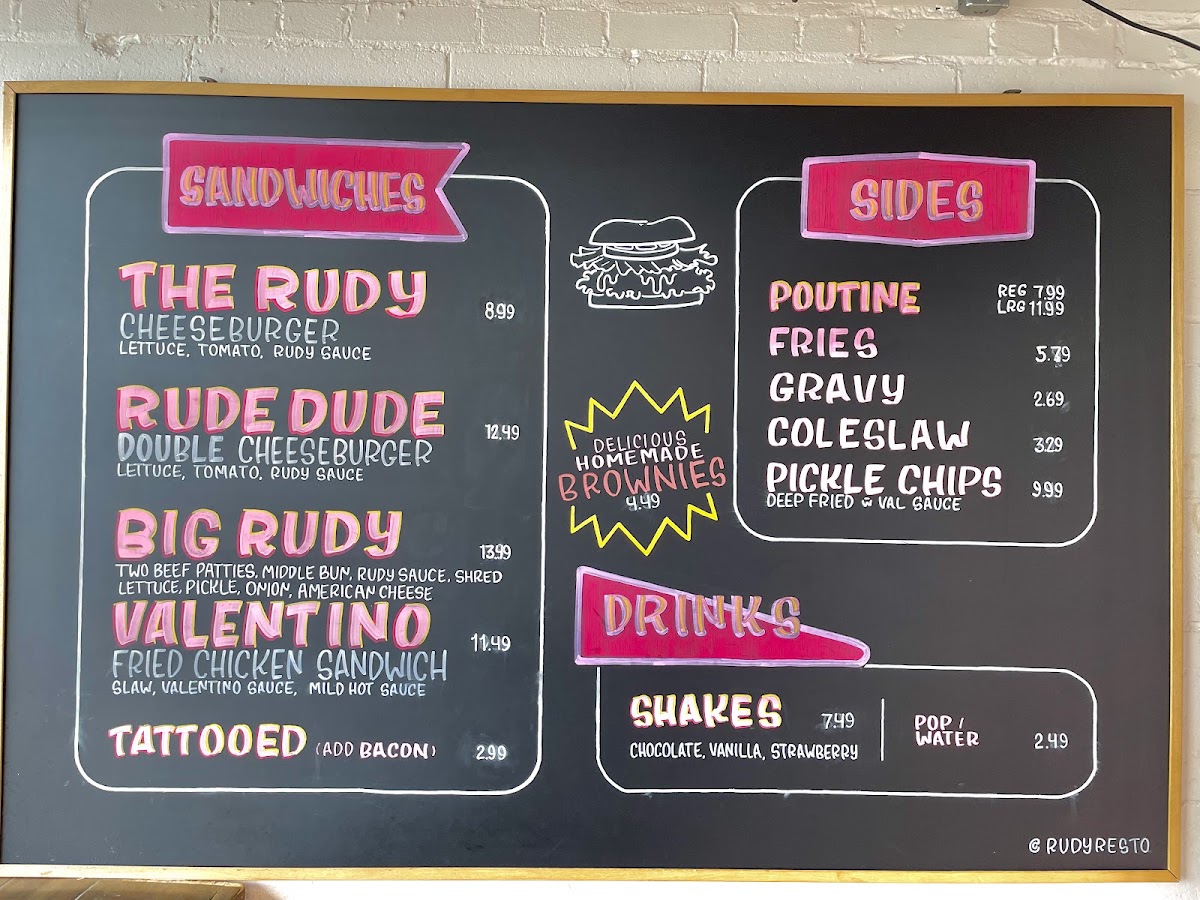 SANDWICHES
THE RUDY 8.99
CHEESEBURGER
LETTUCE, TOMATO, RUDY SAUCE
RUDE DUDE 12.49
DOUBLE CHEESEBURGER
LETTUCE, TOMATO, RUDY SAUCE
BIG RUDY 13.99
TWO BEEF PATTIES, MIDDLE BUN, RUDY SAUCE, SHRED
LETTUCE, PICKLE, ONION, AMERICAN CHEESE
VALENTINO 11.49
FRIED CHICKEN SANDWICH
SLAW, VALENTINO SAUCE, MILD HOT SAUCE
TATTOOED (ADD BACON) 2.99
DELICIOUS
HOMEMADE
BROWNIES
4.49
SIDES
POUTINE REG 7.99
LRG 11.99
FRIES
GRAVY 2.69
COLESLAW 3.29
PICKLE CHIPS 9.99
DEEP FRIED w VAL SAUCE
DRINKS
SHAKES 7.49
CHOCOLATE, VANILLA, STRAWBERRY
POP /
WATER 2.49
@RUDYRESTO